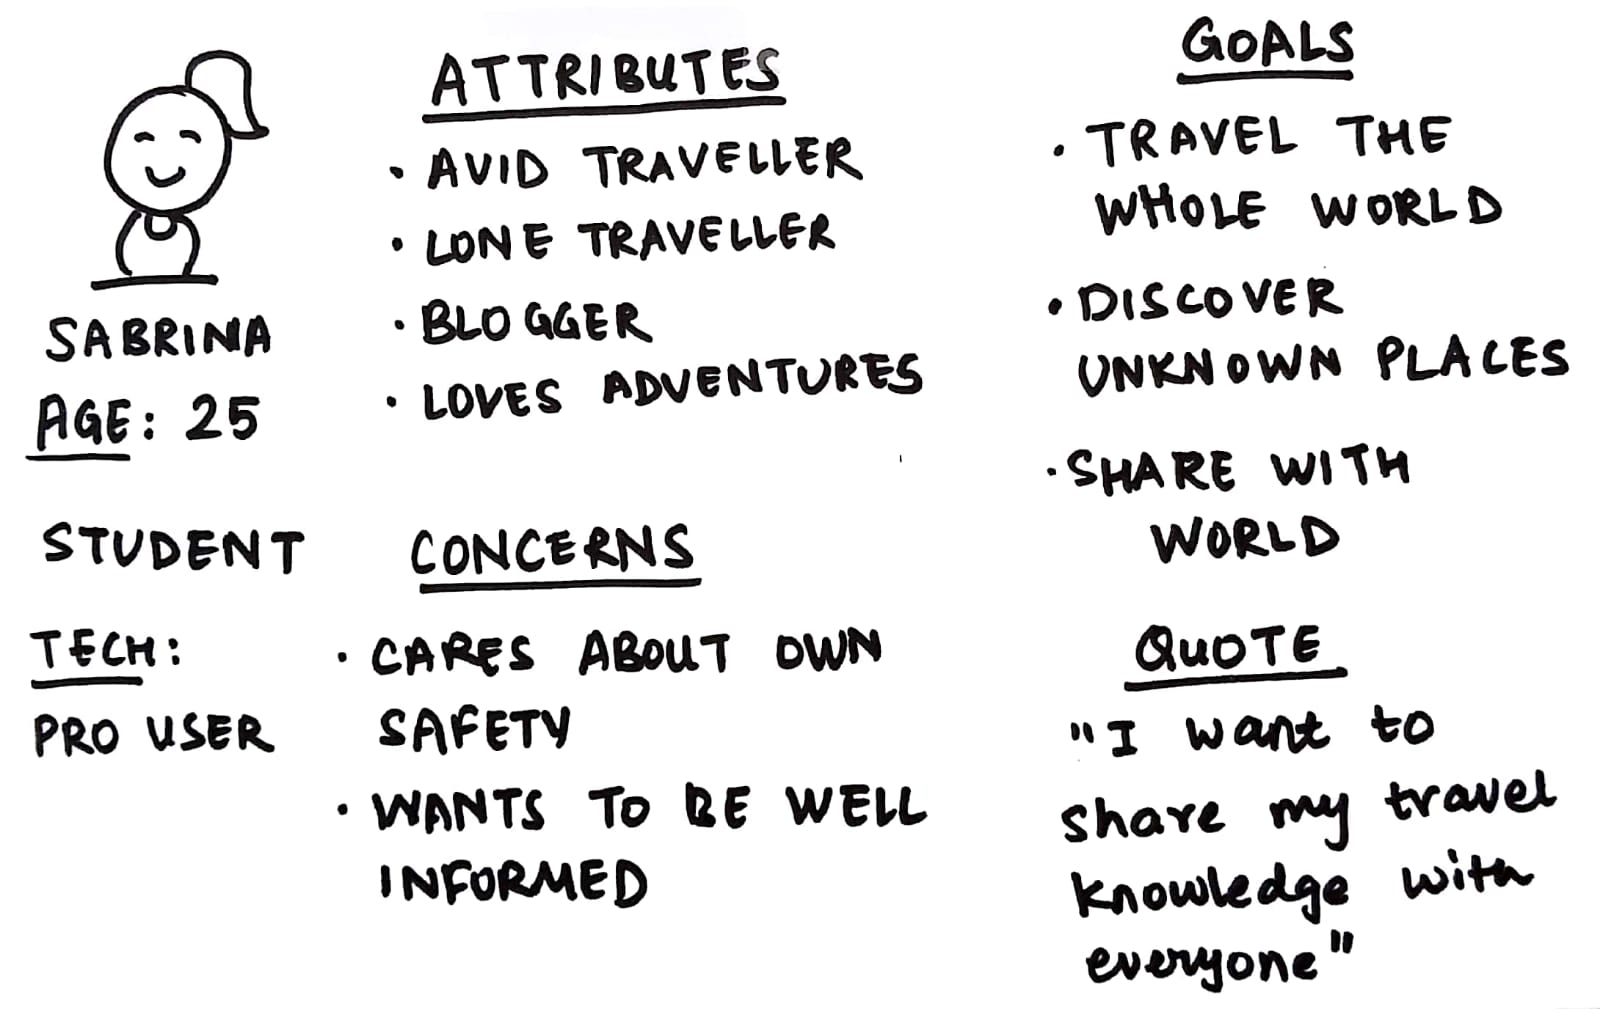 SABRINA
AGE: 25
STUDENT
TECH:
PRO USER
ATTRIBUTES
• AVID TRAVELLER
• LONE TRAVELLER
• BLOGGER
• LOVES ADVENTURES
CONCERNS
• CARES ABOUT OWN
SAFETY
• WANTS TO BE WELL
INFORMED
GOALS
• TRAVEL THE
WHOLE WORLD
• DISCOVER
UNKNOWN PLACES
• SHARE WITH
WORLD
QUOTE
"I want to
share my travel
knowledge with
everyone"